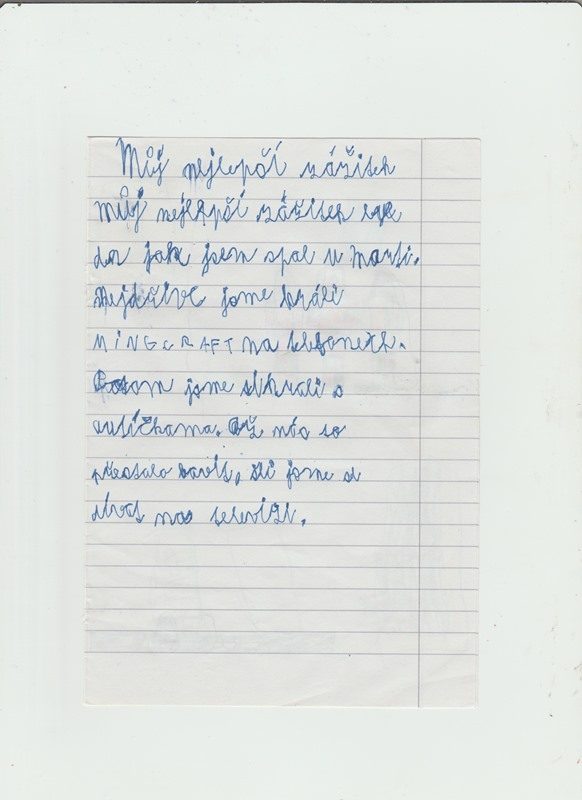 Můj nejlepší zážitek
můj nejlepší zážitek je
to jak jsem spal u Marti.
Nejdříve jsme hráli
MINGCRAFT na telefonech.
Potom jsme si hráli s
autíčkama. Až nás to
přestalo bavit, šli jsme se
dívat na televizi.